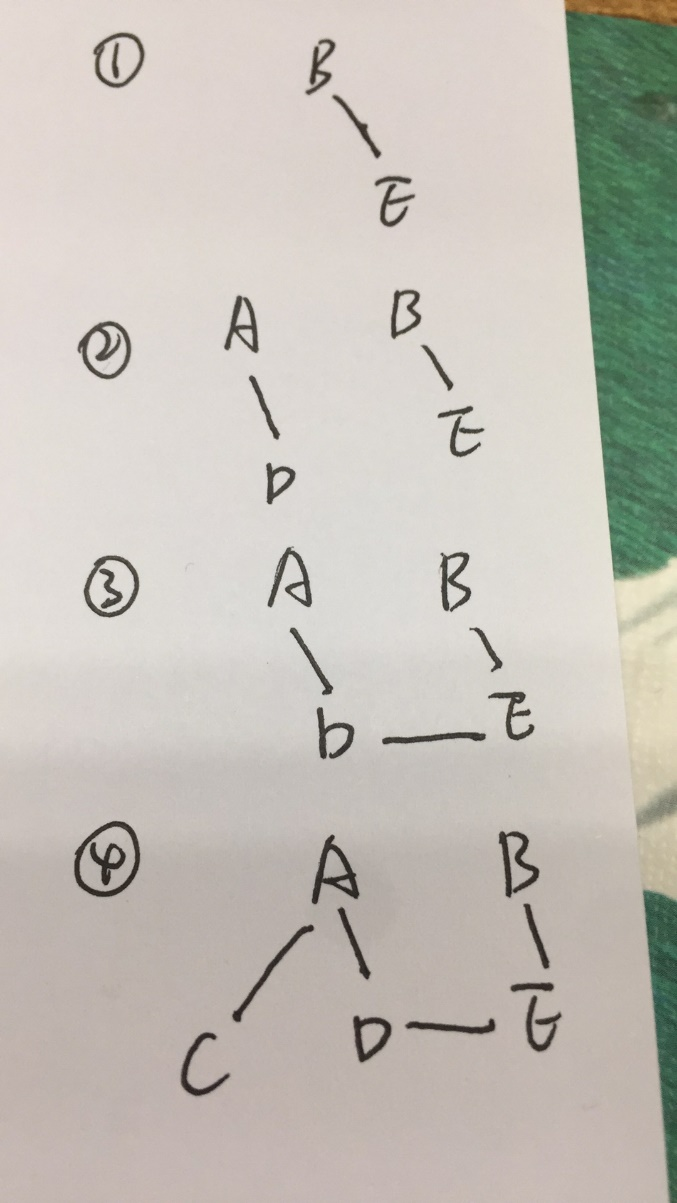 ① B
E
② A B
E
D
③ A B
D E
④ A B
C D E